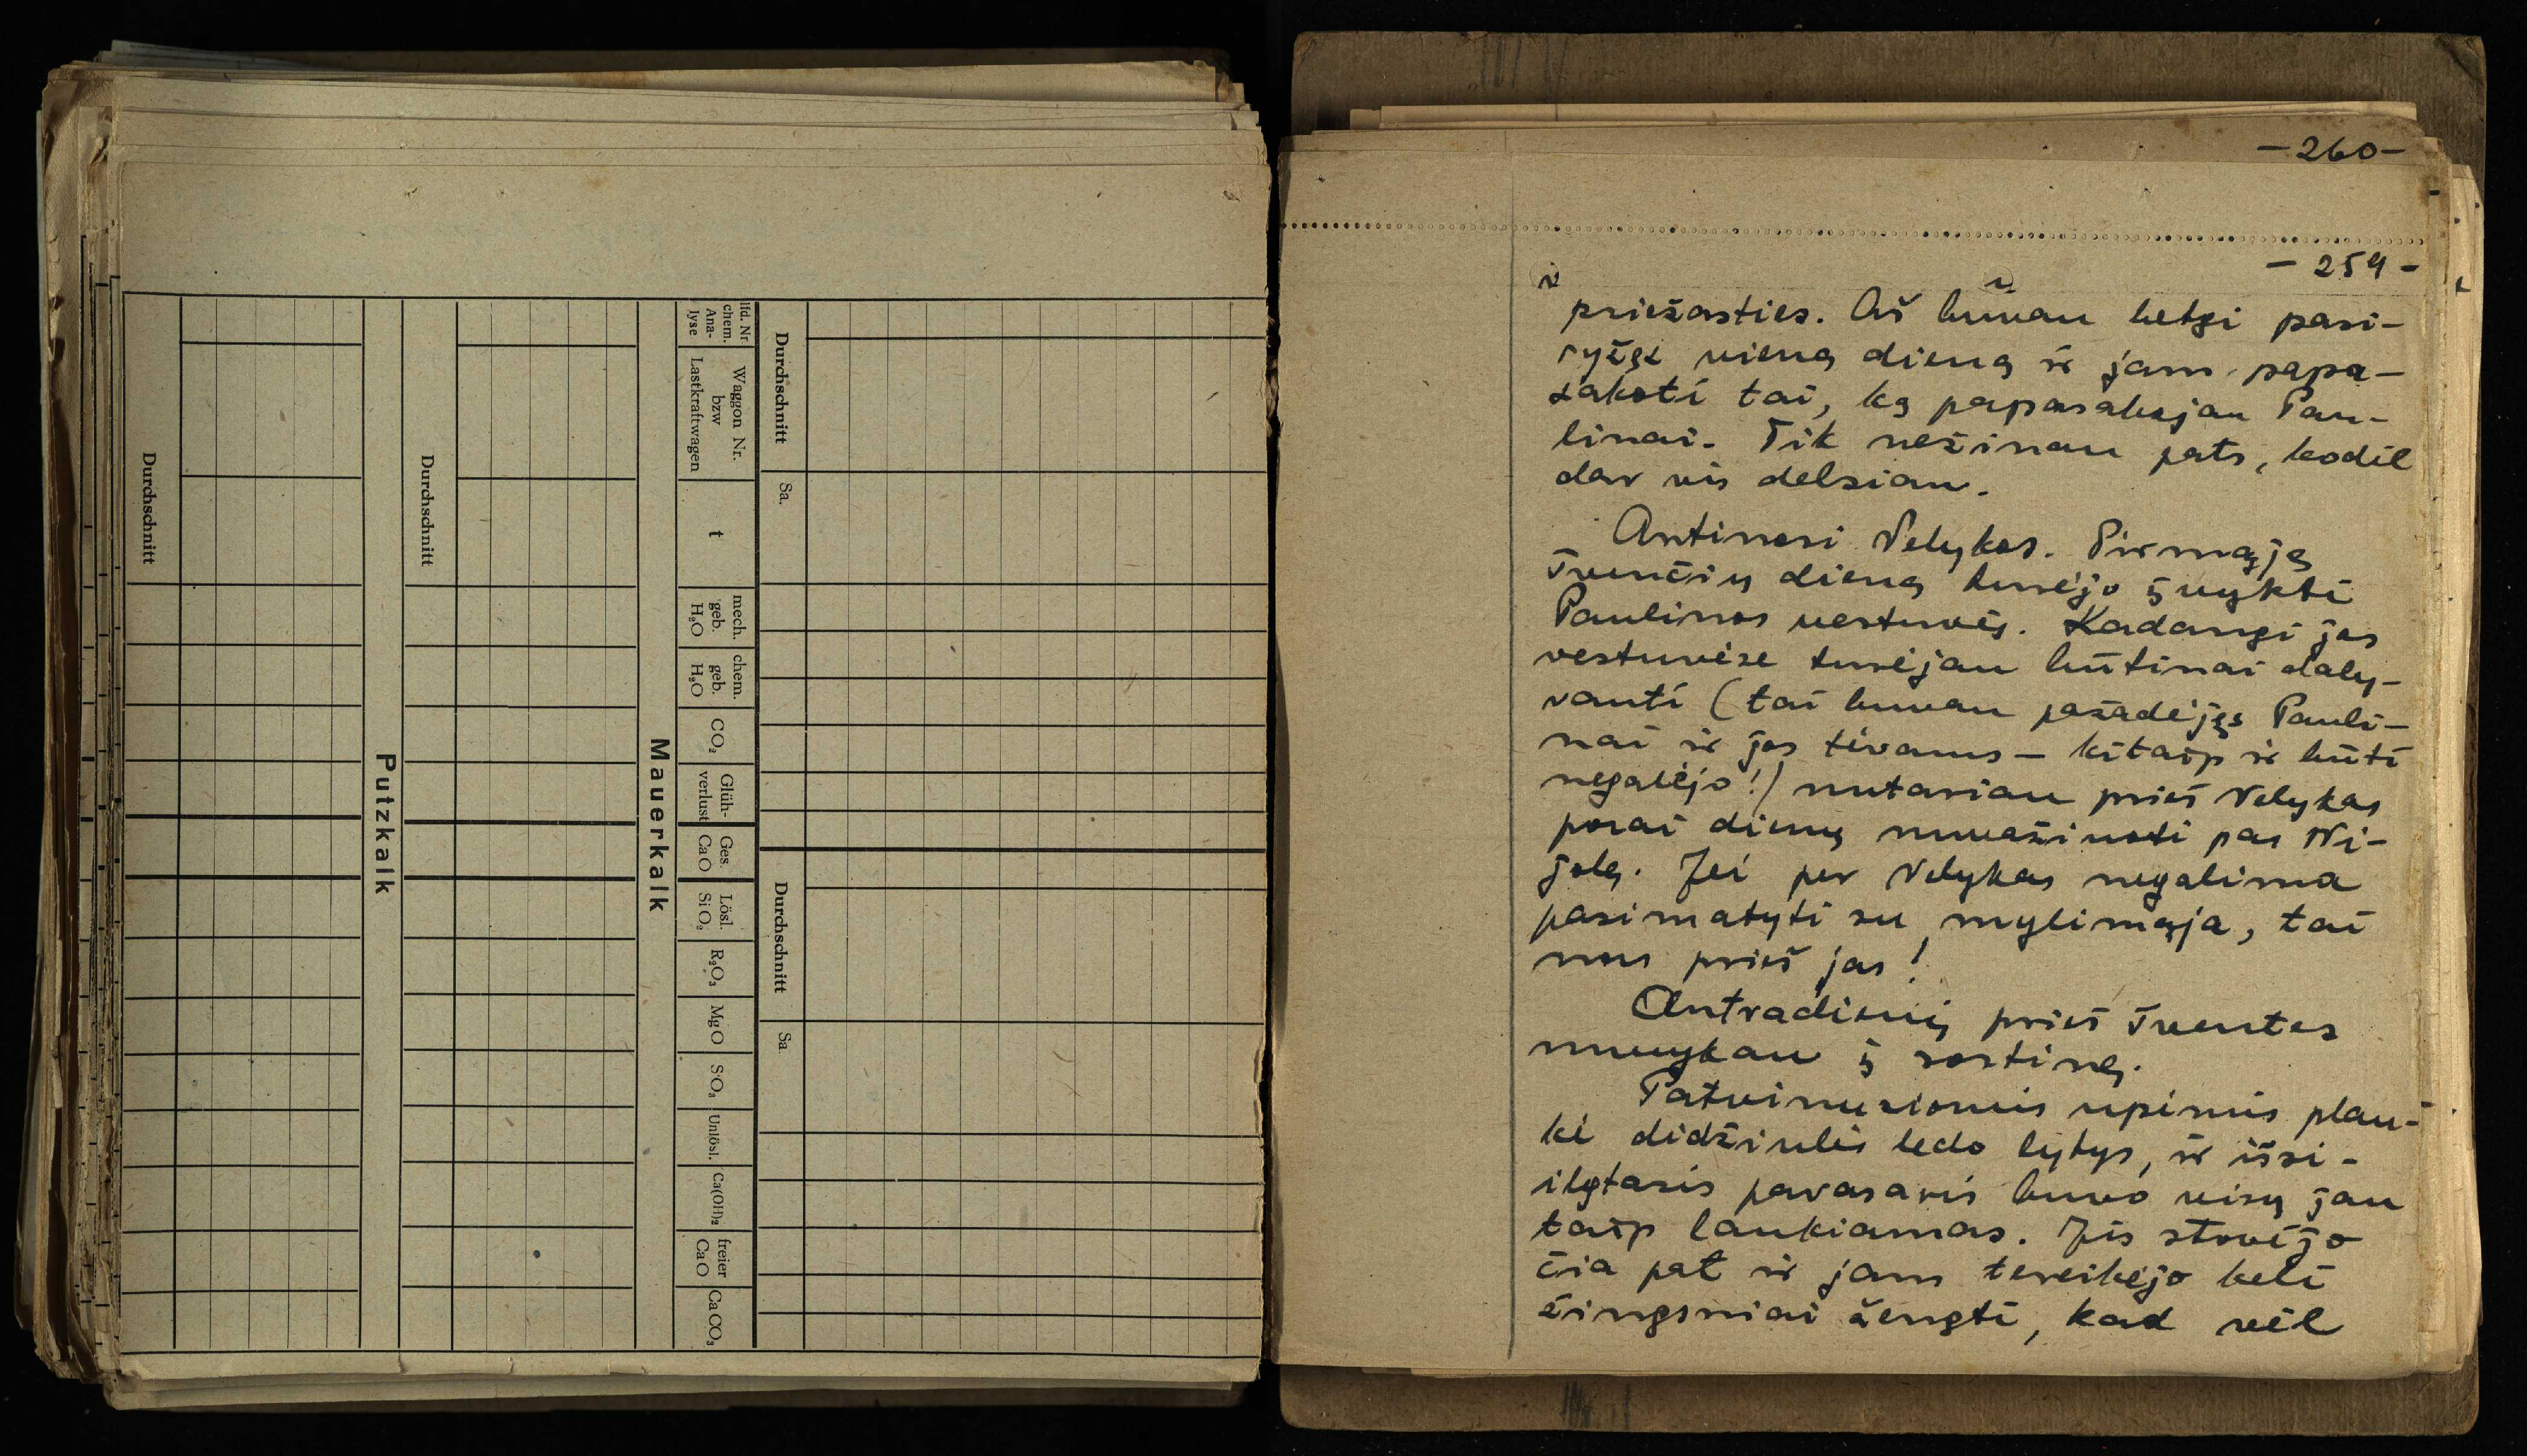 Durchschnitt
Sa.
Durchschnitt
Sa.
lfd. Nr
chem.
Ana-
lyse
Waggon Nr.
bzw
Lastkraftwagen
t
mech.
geb.
H₂O
chem.
geb.
H₂O
CO₂
Glüh-
verlust
Ges.
CaO
Lösl.
SiO₂
R₂O₃
MgO
SO₃
Unlösl.
Ca(OH)₂
freier
CaO
CaCO₃
Mauerkalk
Durchschnitt
Putzkalk
Durchschnitt
- 260 -
- 259 -
priežasties. Aš buvau betgi pasi-
ryžęs vieną dieną ir jam papa-
sakoti tai, ką papasakojau Pau-
linai. Tik nežinau pats, kodėl
dar vis delsiau.
Artinosi Velykos. Pirmąją
švenčių dieną turėjo įvykti
Paulinos vestuvės. Kadangi jos
vestuvėse turėjau būtinai daly-
vauti (tai buvau pažadėjęs Pauli-
nai ir jos tėvams – kitaip ir būti
negalėjo!) nutariau prieš Velykas
porai dienų nuvažiuoti pas Ni-
jolę. Jei per Velykas negalima
pasimatyti su mylimąja, tai
nors prieš jas!
Antradienį prieš šventes
nuvykau į sostinę.
Patvinusiomis upėmis plau-
kė didžiulės ledo lytys, ir išsi-
ilgtasis pavasaris buvo visų jau
taip laukiamas. Jis stovėjo
čia pat ir jam tereikėjo keli
žingsniai žengti, kad vėl